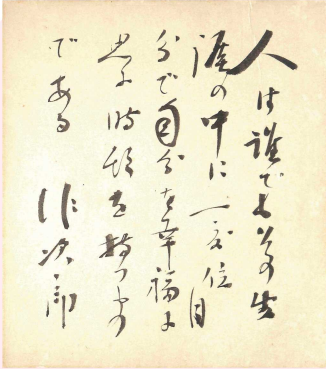 人は誰でもその生
涯の中に一度位自
分で自分を幸福に
思ふ時期を持つもの
である 作次郎